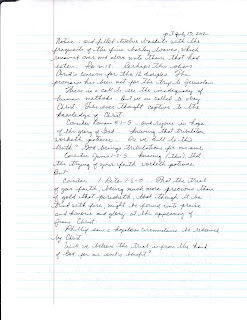 p.3 July 15, 2012
Notice - and filled twelve baskets with the
fragments of the five barley loaves, which
remained over and above unto them that had
eaten. Jn 6:13. Perhaps this shows
Christ's concern for the 12 disciples. The
provision has been met for the trip to Jerusalem.
There is a call to see the inadequacy of
human methods - But we are called to obey
Christ. This sees thought captive to the
knowledge of Christ.
Consider Romans 5:1-5 and rejoice in hope
of the glory of God - knowing that tribulation
worketh patience. Do we hold to this
truth? God brings tribulations for us
Consider James 1:2-5 - knowing (this) that
the trying of your faith worketh patience.
But
Consider 1 Peter 1:6-8 - That the trial
of your faith, being much more precious than
of gold that perisheth, that though it be
tried with fire, might be found unto praise
and honour and glory at the appearing of
Jesus Christ.
Phillip saw a hopeless circumstance to
by Christ.
Will we believe the trial is from the hand
of God for our soul's benefit?